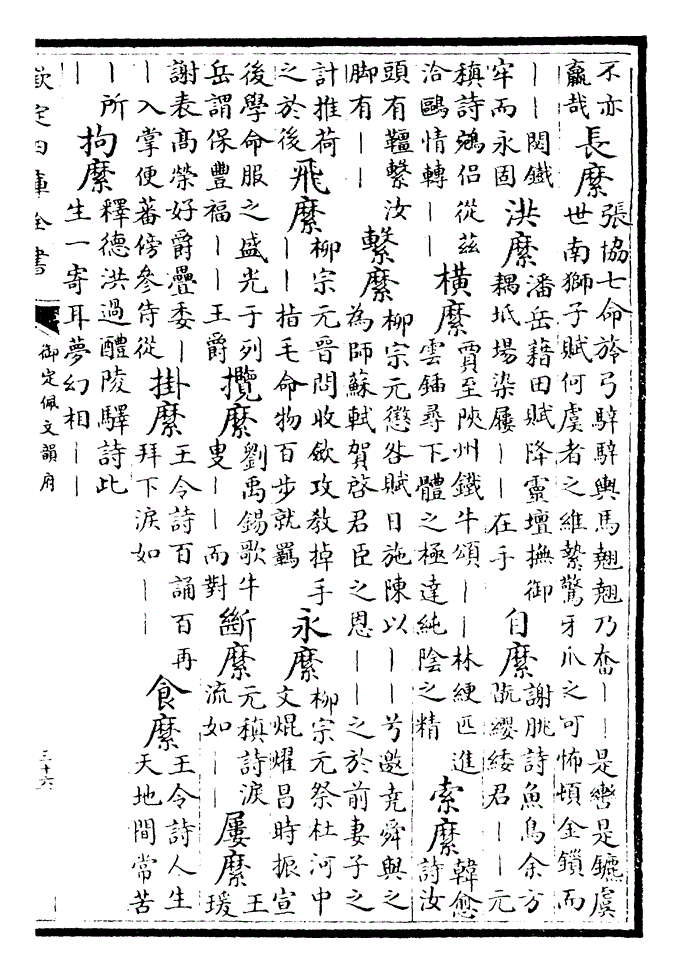 不亦羸哉 長縻 張協七命於弓騂騂輿馬翹翹乃奮丨丨是轡是鑣虞世南獅子賦何虞者之維縶驚牙爪之可怖頓金鎖而
丨丨閱鐵牢而永固 洪縻 潘岳藉田賦降靈壇撫御耦坻場染屨丨丨在手 自縻 謝朓詩魚鳥余方翫纓緌君丨丨元
稹詩鵷侶從茲洽鷗情轉丨丨 橫縻 賈至陜州鐵牛頌丨丨林綆匹進雲鍤尋下體之極達純陰之精 索縻 韓愈詩汝
頭有韁繫汝脚有丨丨 繫縻 柳宗元懲咎賦日施陳以丨丨兮邀堯舜與之為師蘇軾賀啓君臣之恩丨丨之於前妻子之
計推荷之於後 飛縻 柳宗元晉問收歛攻教掉手丨丨指毛命物百步就羈 永縻 柳宗元祭杜河中文焜燿昌時振宣
後學命服之盛光于列岳謂保豐福丨丨王爵 攬縻 劉禹錫歌牛叟丨丨而對 斷縻 元稹詩淚流如丨丨 屢縻 王瑗
謝表髙榮好爵疊委丨丨入掌便蕃傍參侍從 掛縻 王令詩百誦百再拜下淚如丨丨 食縻 王令詩人生天地間常苦
丨丨所 拘縻 釋德洪過醴陵驛詩此生一寄耳夢幻相丨丨
欽定四庫全書 御定佩文韻府 三十六